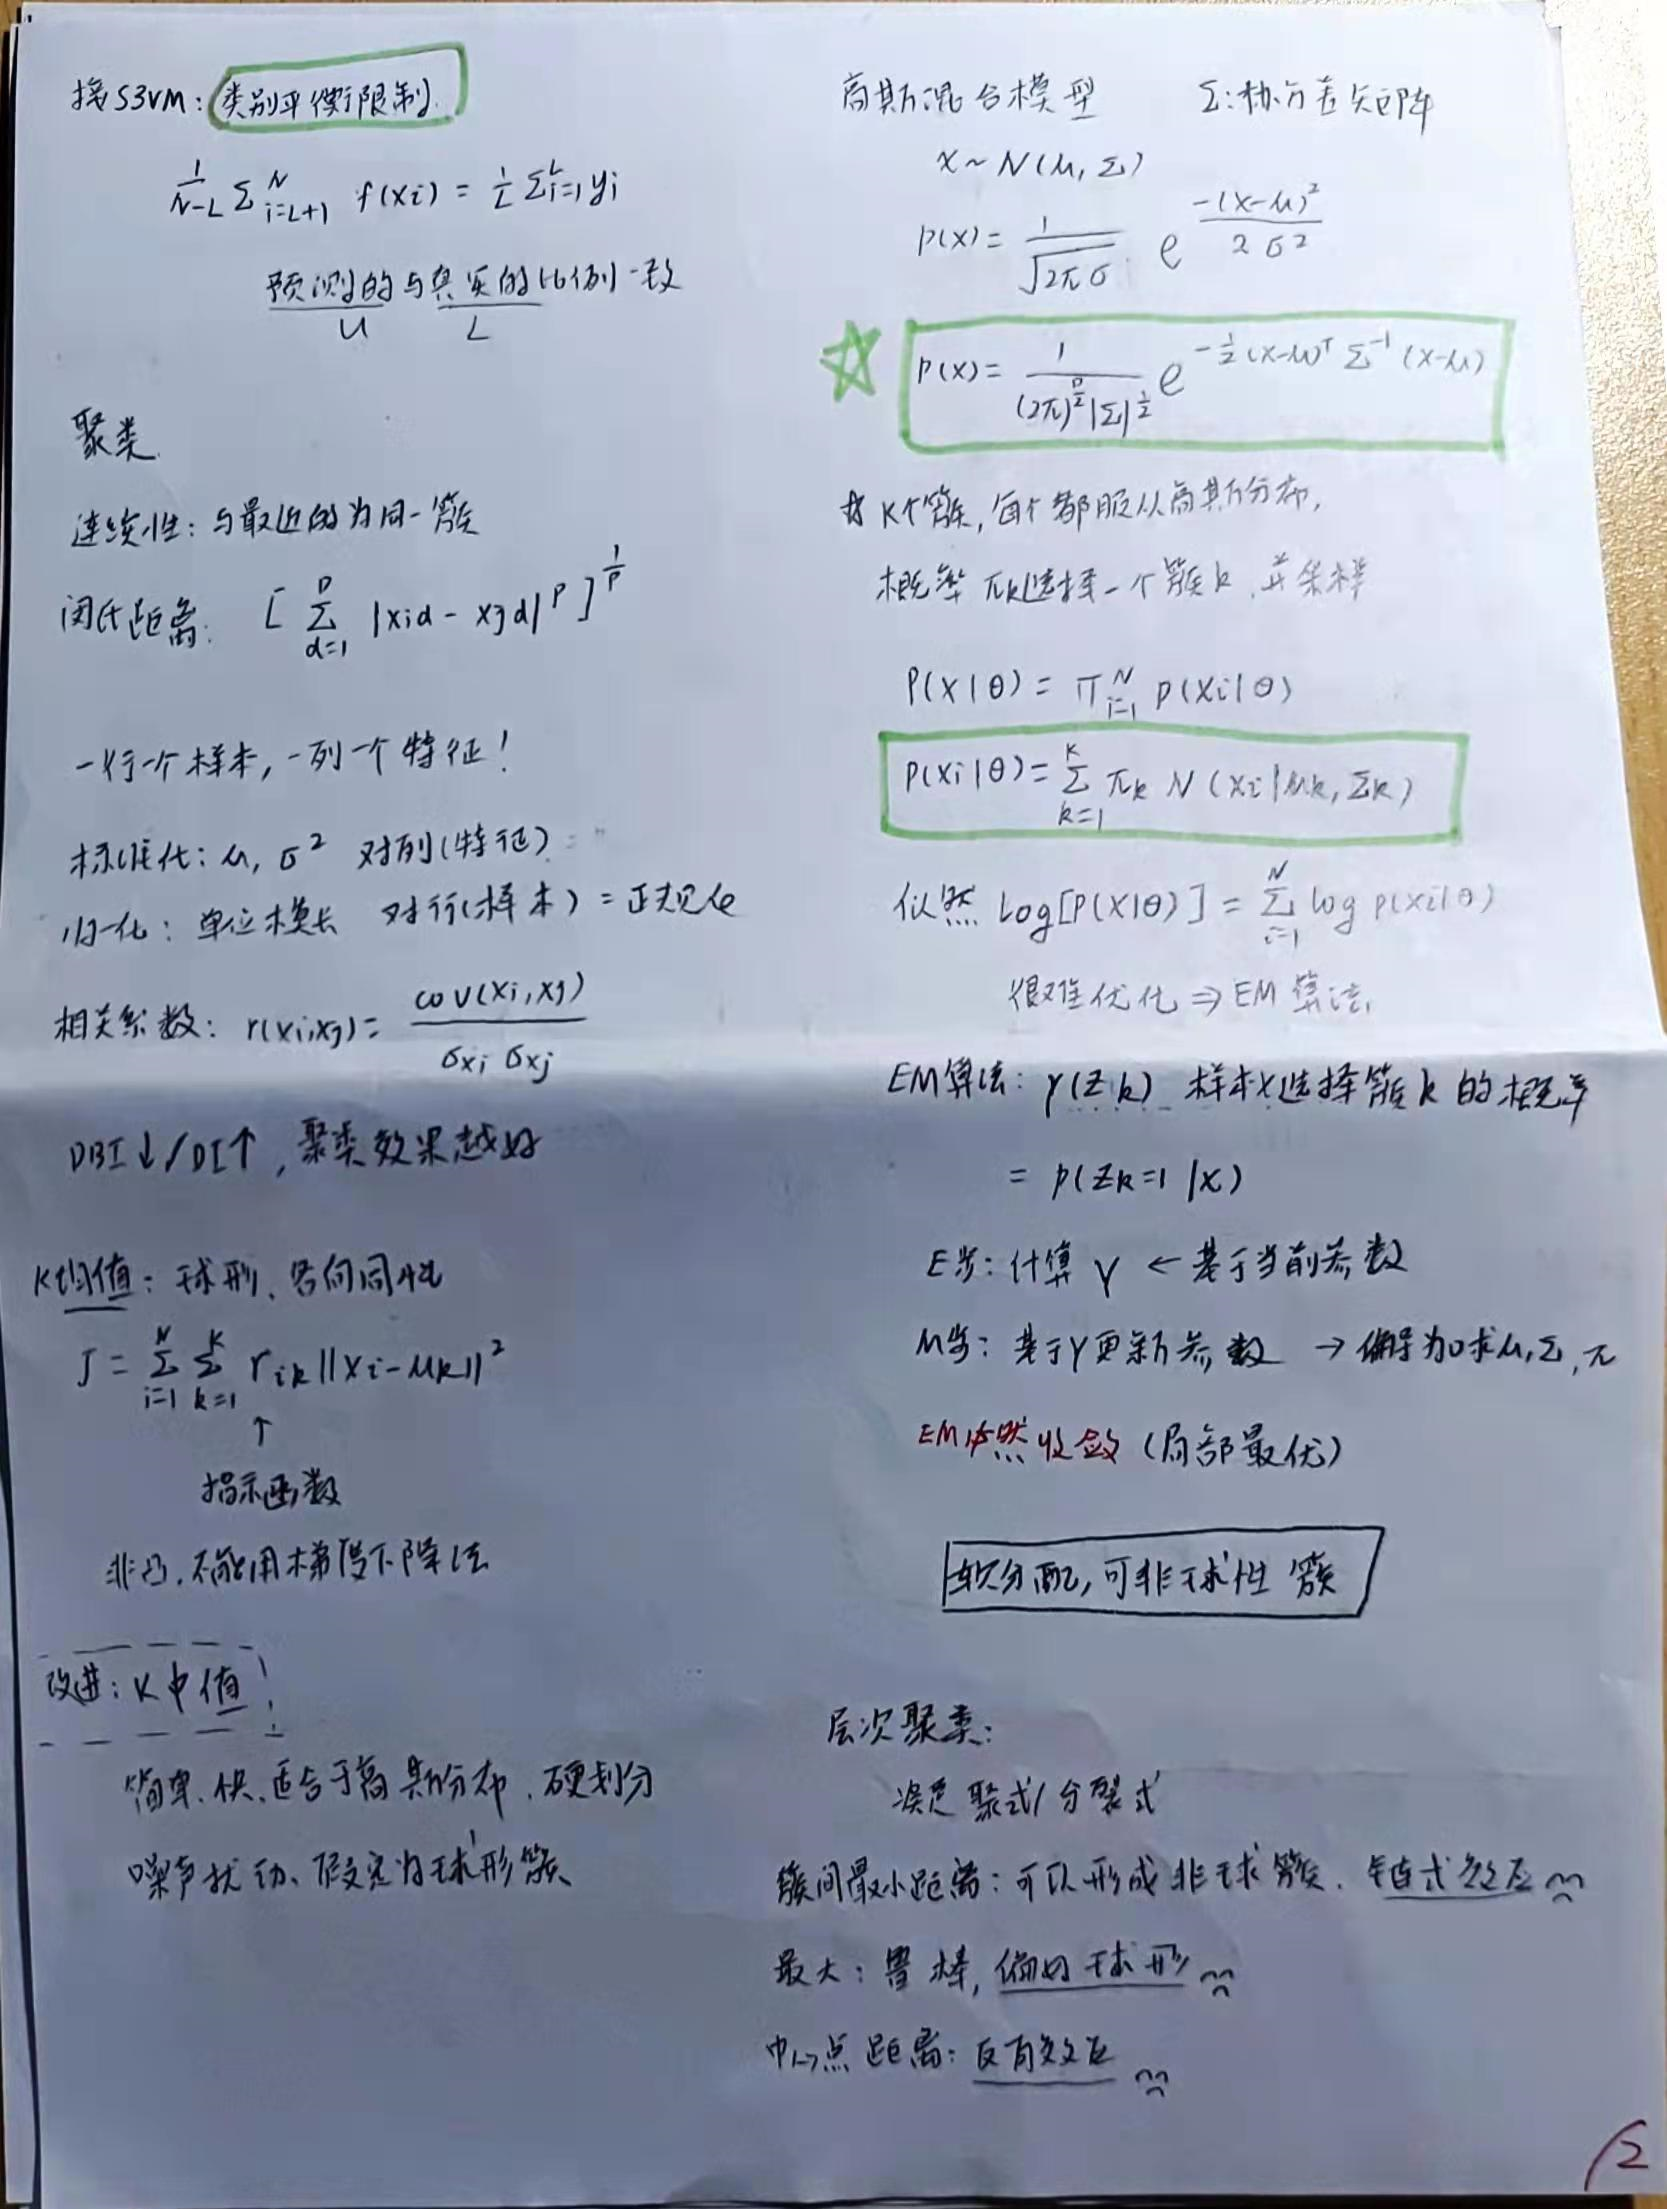 接S3VM: 类别平衡限制
1/(N-L) Σ_{i=L+1}^N f(xi) = 1/L Σ_{i=1}^L yi
预测的与真实的比例一致
U L
聚类
连续性: 与最近的为同一簇
闵氏距离: [ Σ_{d=1}^D |xid - xjd|^P ]^{1/P}
一行一个样本, 一列一个特征!
标准化: μ, σ² 对列(特征)
归一化: 单位模长 对行(样本) = 正规化
相关系数: r(xi,xj) = cov(xi,xj) / σxi σxj
DBI↓/DI↑, 聚类效果越好
K均值: 球形、各向同性
J = Σ_{i=1}^N Σ_{k=1}^K rik ||xi-μk||²
↑
指示函数
非凸. 不能用梯度下降法
改进: K中值
简单、快、适合于高斯分布、硬划分
噪声扰动、假定为球形簇
高斯混合模型 Σ:协方差矩阵
x ~ N(μ, Σ)
p(x) = 1/√2πσ e^{-(x-μ)²/2σ²}
☆ p(x) = 1/((2π)^{D/2} |Σ|^{1/2}) e^{-1/2 (x-μ)^T Σ^{-1} (x-μ)}
K个簇, 每个都服从高斯分布,
概率πk选择一个簇k, 并采样
P(X|θ) = Π_{i=1}^N p(xi|θ)
p(xi|θ) = Σ_{k=1}^K πk N(xi|μk, Σk)
似然 log[P(X|θ)] = Σ_{i=1}^N log p(xi|θ)
很难优化 ⇒ EM算法
EM算法: γ(Zk) 样本x选择簇k的概率
= p(Zk=1|x)
E步: 计算γ ← 基于当前参数
M步: 基于γ更新参数 → 偏导为0求μ,Σ,π
EM必然收敛 (局部最优)
软分配, 可非球性簇
层次聚类:
聚式/分裂式
簇间最小距离: 可以形成非球簇. 链式效应
最大: 鲁棒, 偏好球形
中心点距离: 反向效应
12